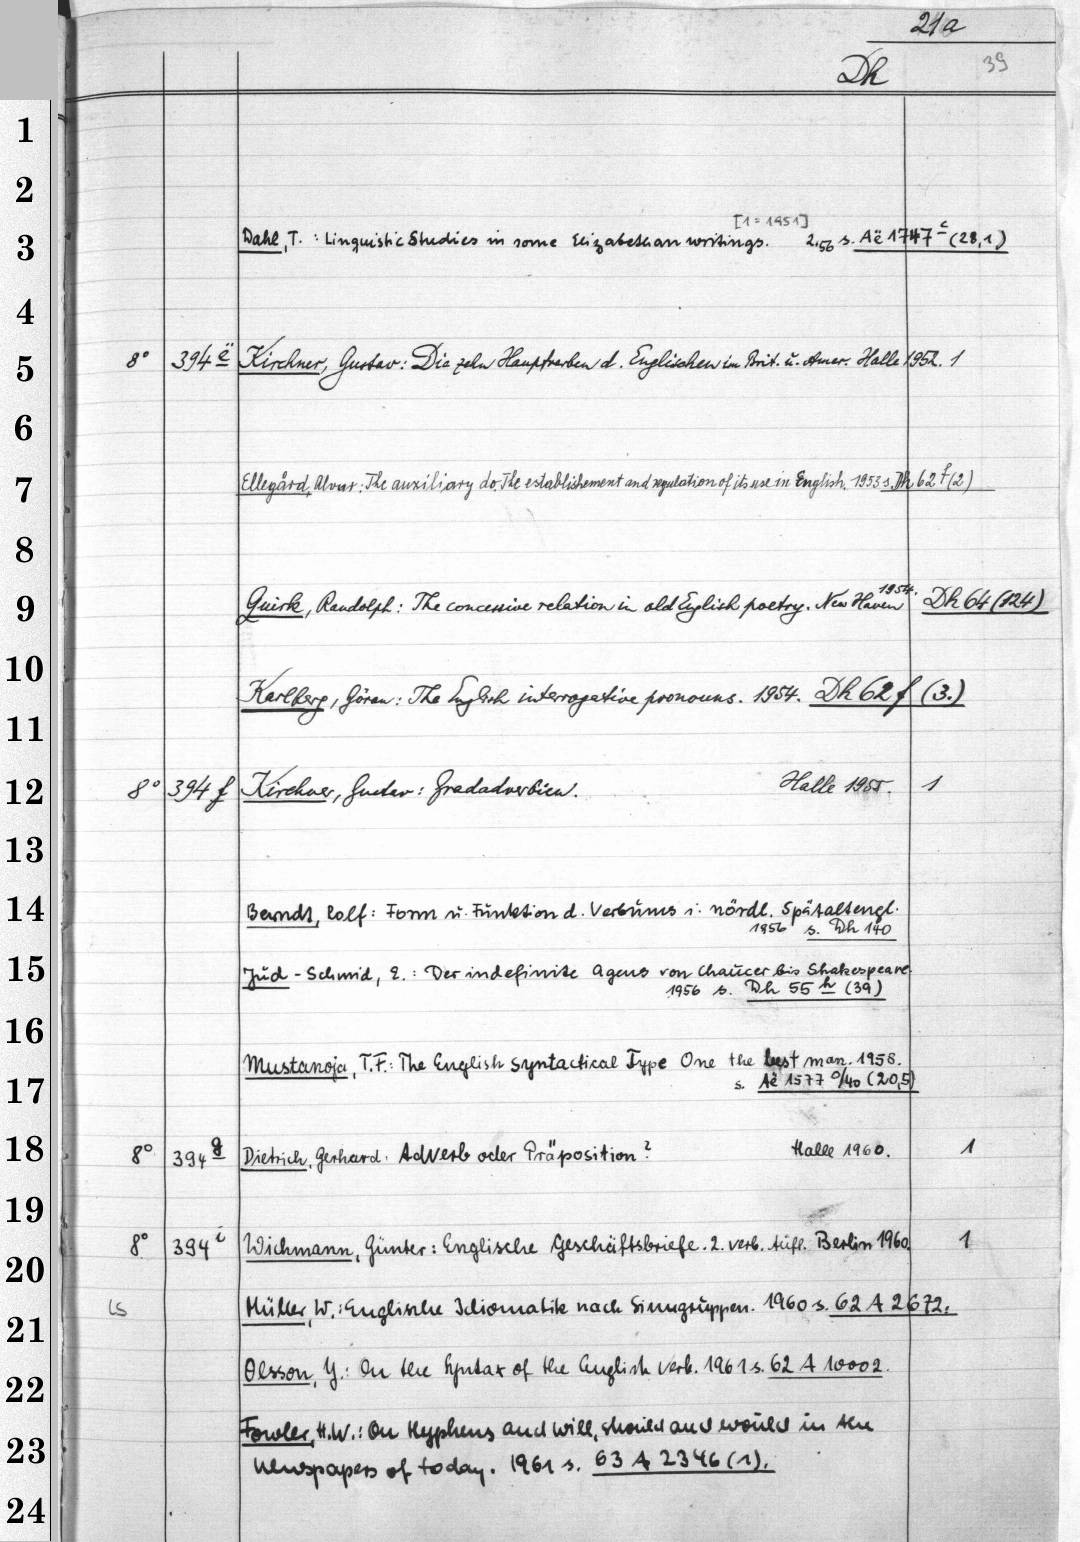 21a
Dh 39
1
2
[1 = 1951]
3 Dahl, T. : Linguistic Studies in some Elizabethan writings. 2.56 s. Aë 1747 c (28,1)
4
5 8° 394 ë Kirchner, Gustav: Die zehn Hauptverben d. Englischen im Brit. u. Amer. Halle 1952. 1
6
7 Ellegård, Alvar: The auxiliary do. The establishement and regulation of its use in English. 1953 s. Dh 62 f (2)
8
9 Quirk, Randolph: The concessive relation in old English poetry. New Haven 1954. Dh 64 (124)
10 Karlberg, Göran: The English interrogative pronouns. 1954. Dh 62 f (3.)
11
12 8° 394 f Kirchner, Gustav: Gradadverbien. Halle 1955. 1
13
14 Berndt, Rolf: Form u. Funktion d. Verbums i. nördl. Spätaltengl.
1956 s. Dh 140
15 Jud-Schmid, E.: Der indefinite Agens von Chaucer bis Shakespeare.
1956 s. Dh 55 h (39)
16
Mustanoja, T.F.: The English Syntactical Type One the best man. 1958.
17 s. Aë 1577 0/40 (20,5)
18 8° 394 g Dietrich, Gerhard. Adverb oder Präposition? Halle 1960. 1
19
8° 394 i Wichmann, Günter: Englische Geschäftsbriefe. 2. verb. Aufl. Berlin 1960. 1
20
LS Müller, W.: Englische Idiomatik nach Sinngruppen. 1960 s. 62 A 2672.
21
22 Olsson, Y.: On the Syntax of the English verb. 1961 s. 62 A 10002.
Fowler, H.W.: On Hyphens and Will, should and would in the
23 Newspapers of today. 1961 s. 63 A 2346 (1).
24